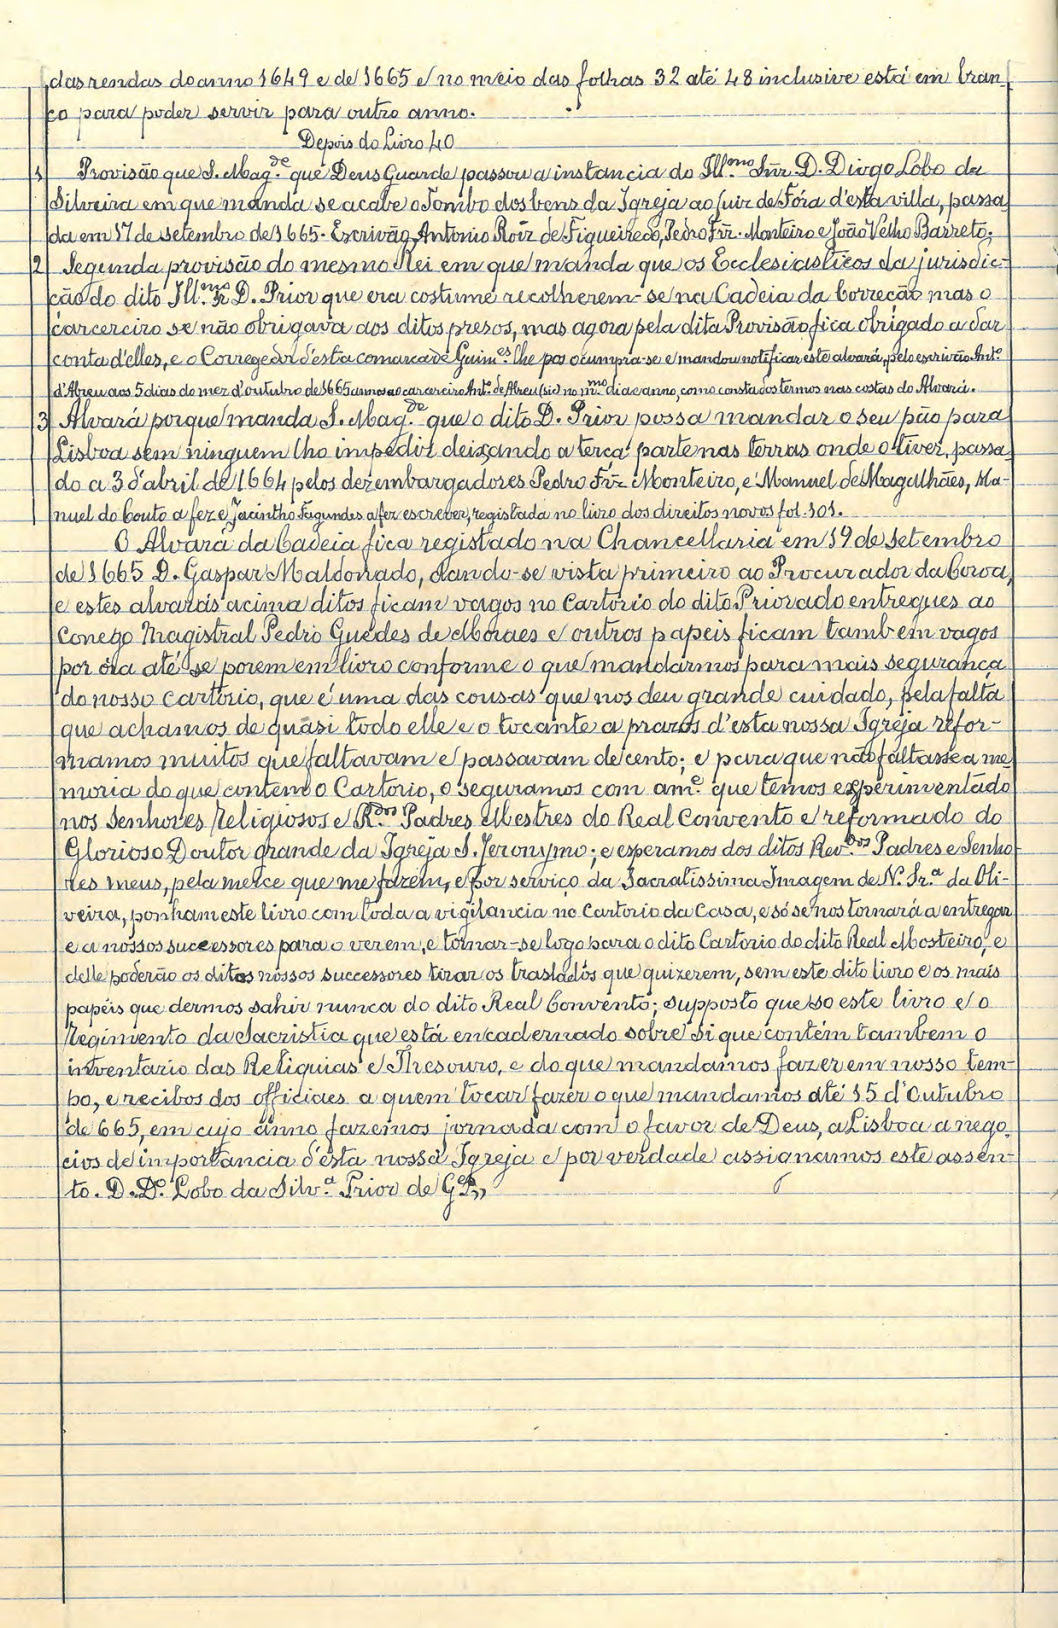 das rendas do anno 1649 e de 1665 e no meio das folhas 32 até 48 inclusive está em bran-
co para poder servir para outro anno.
Depois do Livro 40
1 Provisão que S. Mag.de que Deus Guarde passou a instancia do Ill.mo Snr. D. Diogo Lobo da
Silveira em que manda se acabe o Tombo dos bens da Igreja ao Juiz de Fóra d'esta villa, passa-
da em 17 de setembro de 1665. Escrivão, Antonio Roiz de Figueiredo, Pedro Frz. Monteiro e João Velho Barreto;
2 Segunda provisão do mesmo Rei em que manda que os Ecclesiasticos da jurisdic-
ção do dito Ill.mo Sr. D. Prior que era costume recolherem-se na Cadeia da Correcão mas o
carcereiro se não obrigava aos ditos presos, mas agora pela dita Provisão fica obrigado a dar
conta d'elles, e o Corregedor d'esta comarca de Guim.es lhe pos o cumpra-se e mandou notificar este alvará, pelo escrivão Ant.o
d'Abreu aos 5 dias do mez d'outubro de 1665 annos ao carcereiro Ant.o de Abreu (sic) no m.mo dia e anno, como consta dos termos nas costas do Alvará.
3 Alvará porque manda S. Mag.de que o dito D. Prior possa mandar o seu pão para
Lisboa sem ninguem lho impedir deixando a terça parte nas terras onde o tiver, passa-
do a 3 d'abril de 1664 pelos dezembargadores Pedro Frz. Monteiro, e Manuel de Magalhães, Ma-
nuel do Couto a fez e Jacintho Fagundes a fez escrever, registada no livro dos direitos novos fol. 101.
O Alvará da Cadeia fica registado na Chancellaria em 19 de setembro
de 1665 D. Gaspar Maldonado, dando-se vista primeiro ao Procurador da Coroa,
e estes alvarás acima ditos ficam vagos no Cartorio do dito Priorado entregues ao
Conego Magistral Pedro Guedes de Moraes e outros papeis ficam tambem vagos
por óra até se porem em livro conforme o que mandármos para mais segurança
do nosso cartorio, que é uma das cousas que nos deu grande cuidado, pela falta
que achamos de quasi todo elle e o tocante a prazos d'esta nossa Igreja refor-
mamos muitos que faltavam e passavam de cento; e para que não faltasse a me-
moria do que contem o Cartorio, o seguramos com am.e que temos experimentado
nos Senhores Religiosos e R.dos Padres Mestres do Real Convento e reformado do
Glorioso Doutor grande da Igreja S. Jeronymo; e esperamos dos ditos Rev.dos Padres e Senho-
res meus, pela merce que me fazem, e por serviço da Sacralissima Imagem de N. Sr.a da Oli-
veira, ponham este livro com toda a vigilancia no Cartorio da Casa, e só se nos tornará a entregar
e a nossos successores para o verem, e tornar-se logo para o dito Cartorio do dito Real Mosteiro, e
delle poderão os ditos nossos successores tirar os traslados que quizerem, sem este dito livro e os mais
papéis que dermos sahir nunca do dito Real Convento; supposto que só este livro e o
Regimento da Sacristia que está encadernado sobre si que contém tambem o
inventario das Reliquias e Thesouro, e do que mandamos fazer em nosso tem-
po, e recibos dos officiaes a quem tocar fazer o que mandamos até 15 d'Outubro
de 665, em cujo anno fazemos jornada com o favor de Deus, a Lisboa a nego-
cios de importancia d'esta nossa Igreja e por verdade assignamos este assen-
to. D. D.o Lobo da Silv.a Prior de G.es,,